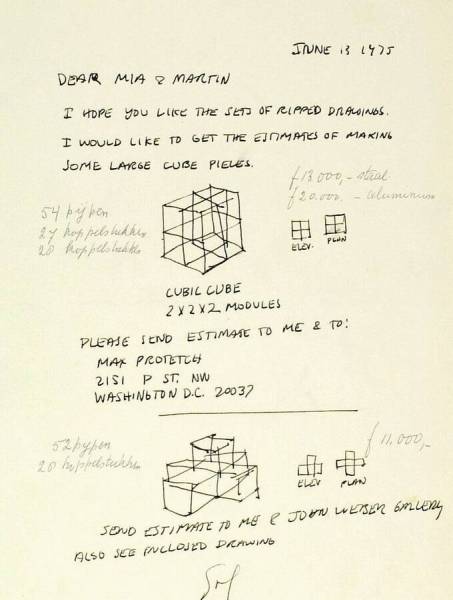 JUNE 13 1975
DEAR MIA & MARTIN
I HOPE YOU LIKE THE SETS OF RIPPED DRAWINGS.
I WOULD LIKE TO GET THE ESTIMATES OF MAKING
SOME LARGE CUBE PIECES.
ƒ 13000,- staal
ƒ 20.000.- aluminium
54 pijpen
27 koppelstukken
20 koppelstukken
ELEV. PLAN
CUBIC CUBE
2X2X2 MODULES
PLEASE SEND ESTIMATE TO ME & TO:
MAX PROTETCH
2151 P ST. NW
WASHINGTON D.C. 20037
52 pypen
20 koppelstukken
ƒ 11.000,-
ELEV PLAN
SEND ESTIMATE TO ME & JOHN WEBER GALLERY
ALSO SEE ENCLOSED DRAWING
Sol